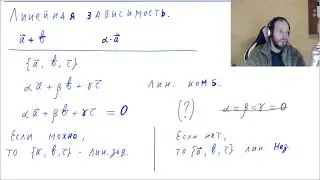 Линейная зависимость.
a⃗ + b⃗   α·a⃗
{a⃗, b⃗, c⃗}
αa⃗ + βb⃗ + γc⃗   лин. комб.
αa⃗ + βb⃗ + γc⃗ = 0   (?)   α=β=γ=0
Если можно,
то {a⃗, b⃗, c⃗} - лин. зав.
Если нет,
то {a⃗, b⃗, c⃗} лин. нез.